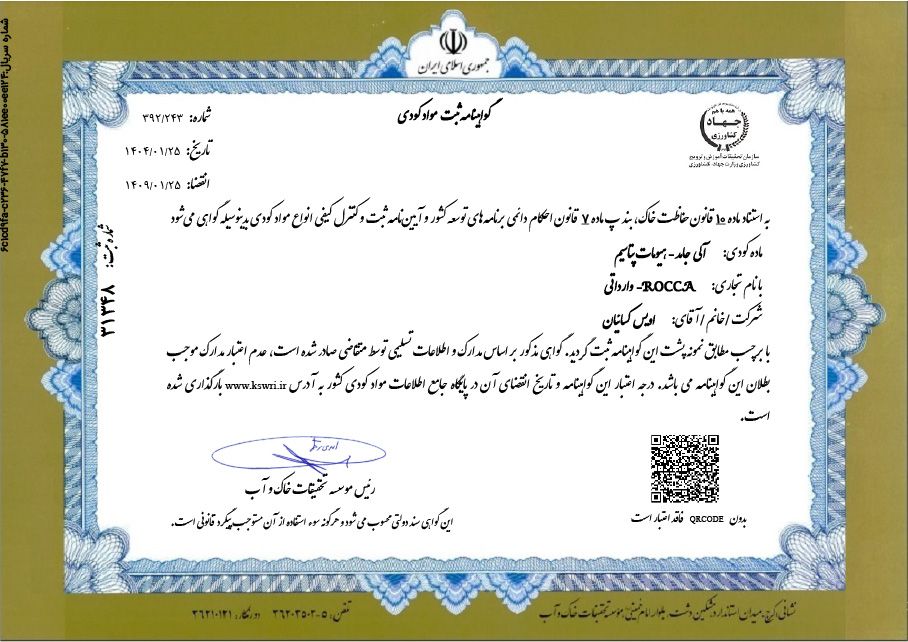 جمهوری اسلامی ایران
گواهینامه ثبت مواد کودی
همه با هم
جهاد
کشاورزی
سازمان تحقیقات، آموزش و ترویج
کشاورزی وزارت جهاد کشاورزی
شماره: ۳۹۲/۲۴۳
تاریخ: ۱۴۰۴/۰۱/۲۵
انقضا: ۱۴۰۹/۰۱/۲۵
شماره ثبت: ۳۱۳۴۸
به استناد ماده ۱۰ قانون حفاظت خاک، بند پ ماده ۷ قانون احکام دائمی برنامه های توسعه کشور و آیین نامه ثبت و کنترل کیفی انواع مواد کودی بدینوسیله گواهی می شود
ماده کودی: آلی جامد - هیومات پتاسیم
با نام تجاری: ROCCA- وارداتی
شرکت / خانم / آقای: اویس کسائیان
با برچسب مطابق نمونه پشت این گواهینامه ثبت گردید. گواهی مذکور بر اساس مدارک و اطلاعات تسلیمی توسط متقاضی صادر شده است، عدم اعتبار مدارک موجب
بطلان این گواهینامه می باشد. درجه اعتبار این گواهینامه و تاریخ انقضای آن در پایگاه جامع اطلاعات مواد کودی کشور به آدرس www.kswri.ir بارگذاری شده
است.
رئیس موسسه تحقیقات خاک و آب
بدون QRCODE فاقد اعتبار است
این گواهی سند دولتی محسوب می شود و هرگونه سوء استفاده از آن مستوجب پیگرد قانونی است.
نشانی: کرج، میدان استاندارد، مشکین دشت، بلوار امام خمینی، موسسه تحقیقات خاک و آب
تلفن: ۵-۳۶۲۰۳۵۰۳ دورنگار: ۳۶۲۱۰۱۲۱